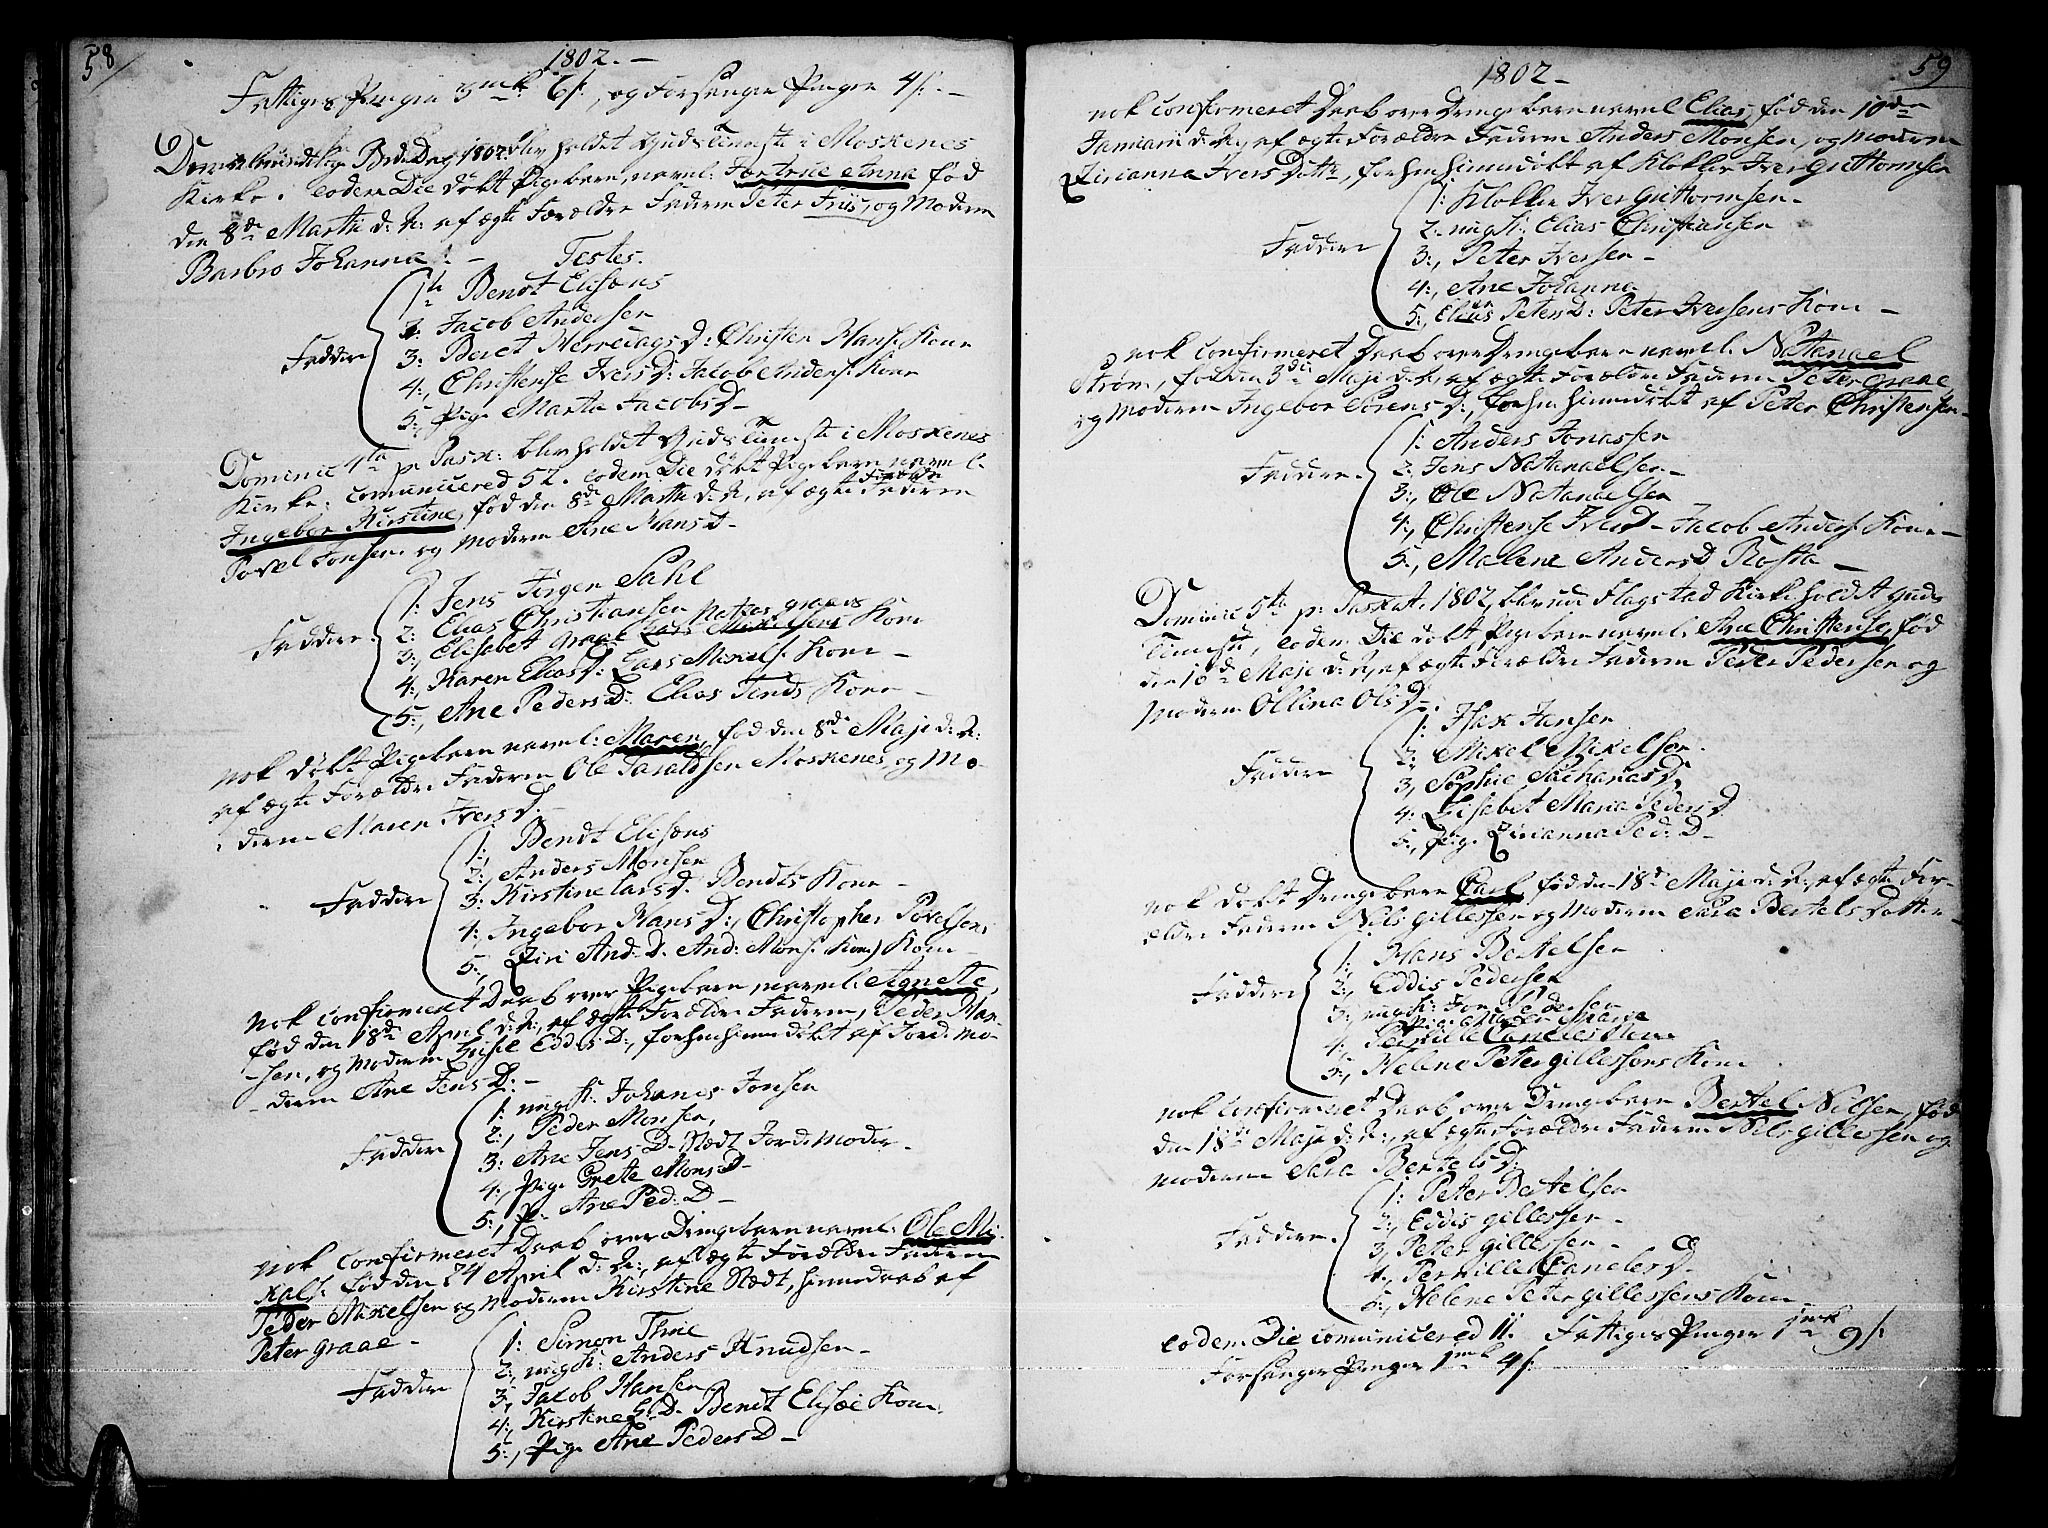 58
1802.
Fattiges Penger 3 mk: 6 s:, og Forsanger Penger 4 s:
Den almindelige BedeDag 1802 blev holdet Gudstienneste i Moskenes
Kirke: eodem Die döbt Pigebarn, navnl: Anna fød
den 8de Martii d: A: af ægte Forældre Faderen Peter Friis, og Moderen
Barbro Johanna
Testes.
Faddere
1: Bendt Elisæus
2: Jacob Andersen
3: Beret HerredagsD: Christen Hans: Kone
4:, Christense IversD: Jacob Anders: Kone
5:, Pige Marta JacobsD
Dominic 4ta p: Pask: blev holdet Gudstienneste i Moskenes
Kirke: comunicered 52. eodem Die döbt Pigebarn navnl:
Ingebor Kirstine, fød den 8de Martii d: A, af ægte Forældre Faderen
Povel Jonsen og Moderen Ane HansD
Faddere
1: Jens Jörgen Dahl
2: Elias Christiansen
3:, Elisabet Graae Lars Mikelsens Kone
4:, Karen EliasD: Lars Mikels: Kone
5:, Ane PedersD: Elias Tends Kone
nok döbt Pigebarn navnl: Maren, fød den 8de Maji d: A:
af ægte Forældre Faderen Ole Taraldsen Moskenes, og Mo-
deren Maren IversD.
Faddere
1:, Bendt Elisæus
2:, Anders Monsen
3: Kirstine LarsD. Bendts Kone
4:, Ingebor HansD:, Christopher Povelsens
5:, Ziri And: D. And: Mons: Kone) Kone
nok confirmeret Daab over Pigebarn, navnl: Agnete,
fød den 18de April d: A:, af ægte Forældre Faderen, Peder Han-
sen, og Moderen Eddis D:, forhen hiemmedöbt af Jorde mo-
deren Ane Jens D:
Faddere
1: ungk: Johanes Jonsen
2:, Peder Monsen,
3: Ane Jens D. Stædt Jorde Moder
4:, Pige Grete MonsD
5:, p: Ane Ped: D
nok confirmeret Daab over Drengebarn navnl: Ole Mi-
kals: fød den 24 April d: A:, af ægte Forældre Faderen
Peder Mikelsen og Moderen Kirstine Stædt, hiemmedaab af
Peter Graae
Faddere
1: Simon Thue
2:, ungk: Anders Knudsen
3, Jacob Hansen
4:, Kirstine L: D. Bendt Elisæi Kone
5:, Pige Ane PedersD
59
1802
nok confirmeret Daab over Drengebarn navnl Elias, fød den 10de
Januarii d: A, af ægte Forældre Faderen Anders Monsen, og Moderen
Zirianna Ivers Dttr, forhen hiemmedöbt af Klokker Iver Guttormsen
Faddere
1: Klokker Iver Guttormsen
2. ungk: Elias Christiansen
3:, Peter Iversen
4:, Ane Johanna
5:, PetersD: Peter Iversens Kone
nok confirmeret Daab over Drengebarn navnl. Natanael
Ström, fød den 3die Maji d. A, af ægte Forældre Faderen Peter Graae,
og Moderen Ingebor SörensD:, forhen hiemmedöbt af Peter Christensen
Faddere
1: Anders Jonassen
2: Jens Natanaelsen
3:, Ole Natanaelsen
4:, Christense IversD Jacob Anders: Kone
5:, Malene AndersD Röstа
Dominic 5ta p: Paskat: 1802, blev udi Flagstad Kirke holdet Guds
Tienneste, eodem Die döbt Pigebarn navnl: Ane Christense, fød
den 10de Maji d: A, af ægte Forældre Faderen Peder Pedersen og
Moderen Ollina OlsD
Faddere
1: Isax Jansen
2: Mikel Mikelsen
3, Sophie ZachariasD,
4: Lisabet Maria PedersD
5:, pige Zirianna Ped: D
nok döbt Drengebarn Carl fød den 18de Maji d: A:, af ægte For-
ældre Faderen Nils Gillessen og Moderen Sara Bertels Datter
Faddere
1:, Hans Bertelsen
2:, Eddis Pedersen
3:, ungk: Jon Pedersen
4:, Pernille
5:, Helene Peter Gillessens Kone
nok confirmeret Daab over Drengebarn Bertel Nilsen, fød
den 18de Maji d: A:, af ægte Forældre Faderen Nils Gillessen og
Moderen Sara BertelsD:
Faddere
1: Peter Bertelsen
2:, Eddis Gillessen
3, Peter Gillessen
4., Pernille CanelesD
5:, Helene Peter Gillessens Kone
eodem Die comunicered 11. Fattiges Penger 1 mk 9 s:
Forsanger Penger 1 mk 4 s: